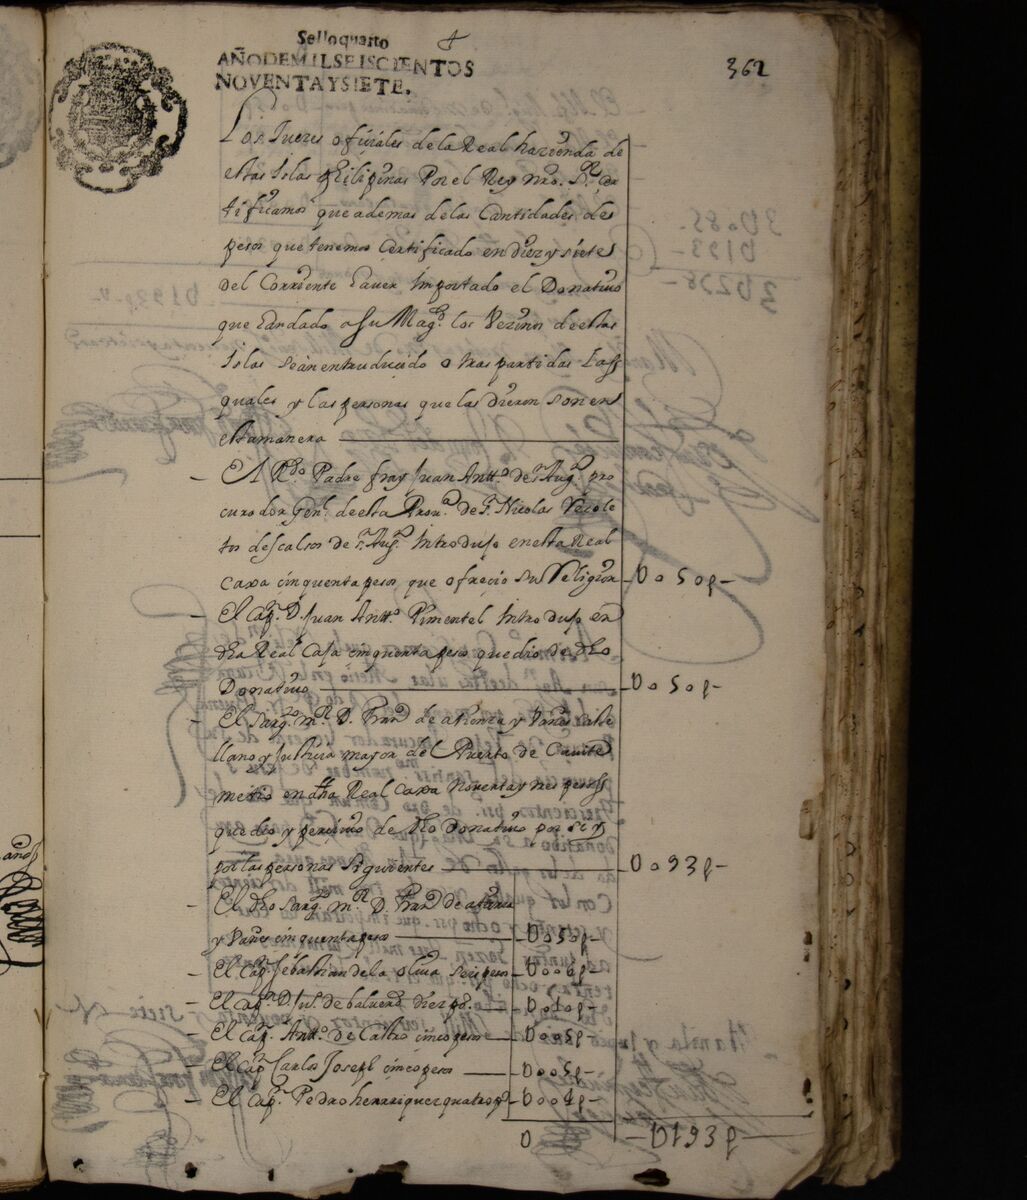 Selloquarto
362
AÑODEMILSEISCIENTOS
NOVENTAYSIETE.
Los Jueces ofiziales de la Real hazienda de
estas Islas Philipinas Por el Rey nro. Sr. Cer
tificamos que ademas de las Cantidades de
pesos que tenemos Certificado en diez y siete
del Corriente hauer Importado el Donatiuo
que han dado a Su Magd. los Vezinos de estas
Islas se an entruducido otras partidas Las
quales y las personas que las dieron son en
esta manera
– El Rdo. Padre fray Juan Antto. de Sn. Augn. pro
curador Genl. de esta Proua. de S. Nicolas Recole
tos descalsos de Sn. Augn. Introdujo en esta Real
caxa cinquenta pesos que ofrecio su Religion —D o 5 0 p—
– El Capn. D. Juan Antto. Pimentel Introdujo en
dha Real Caja cinquenta pesos que dio de dho
Donatiuo —D o 5 0 p—
– El Sargto. mr. D. Franco. de atienza y Vañes caste
llano y Justicia mayor del Puerto de Cauite
metio en dha Real caxa Nouenta y tres pesos
que dio y de dho Donatiuo por si y
por las personas Siguientes —D o 9 3 p—
– El dho Sargto. mr. D. Franco. de atienza
y Vañes cinquenta pesos —D o 5 0 p—
– El Capn. Sebastian de la oliua seis pesos —D o o 6 p—
– El Capn. D. Jul. de diez ps. —D o 1 0 p—
– El Capn. Antto. de Castro cinco pesos —D o o 5 p—
– El Capn. Carlos Joseph cinco pesos —D o o 5 p—
– El Capn. Pedro henrriquez quatro ps —D o o 4 p—
D —D 1 9 3 p—